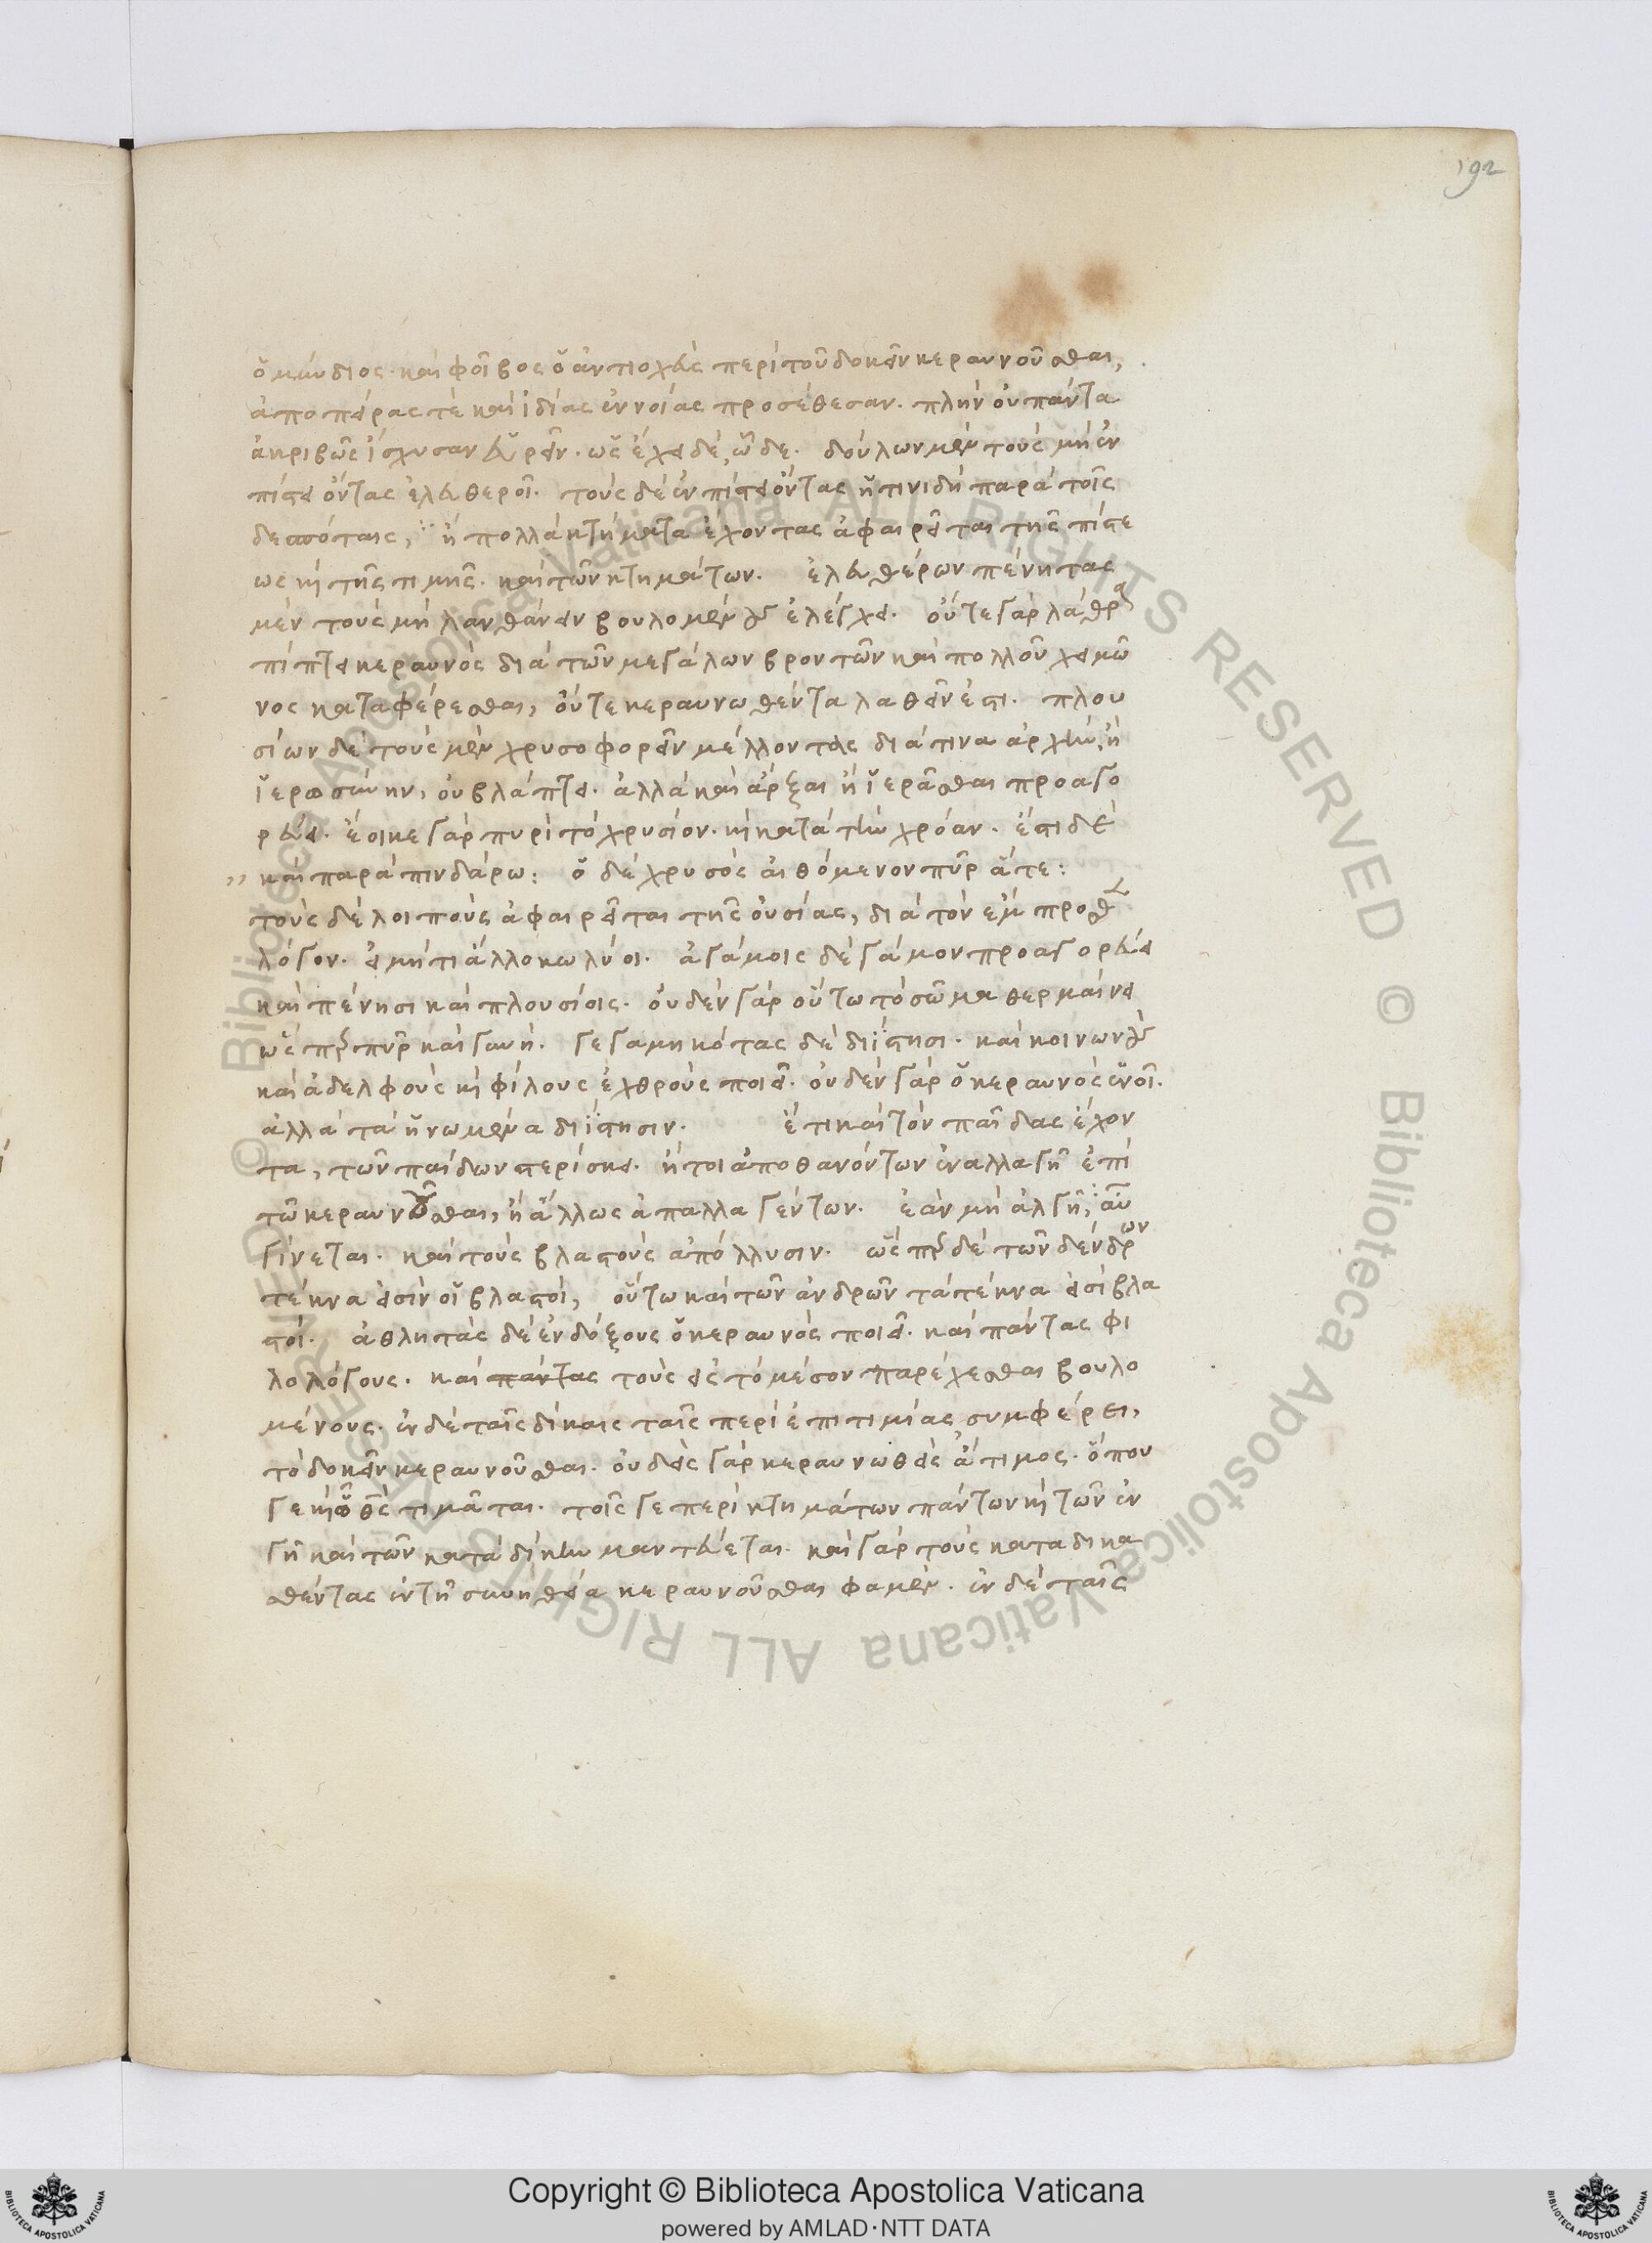 192
ὁ μύνδιος. καὶ φοῖβος ὁ ἀντιοχεὺς περὶ τοῦ δοκεῖν κεραυνοῦσθαι,
ἀπο πείρας τὲ καὶ ἰδίας ἐννοίας προσέθεσαν. πλὴν οὐ πάντα
ἀκριβῶς ἴσχυσαν εὑρεῖν. ὡς ἔχει δὲ, ὧδε. δούλων μὲν τοὺς μὴ ἐν
πίστει ὄντας ἐλευθεροῖ. τοὺς δὲ ἐν πίστει ὄντας ἥτινι δὴ παρὰ τοῖς
δεσπόταις, ἢ πολλὰ κτήματα ἔχοντας ἀφαιρεῖται τῆς πίστε
ως κὶ τῆς τιμῆς. καὶ τῶν κτημάτων. ἐλευθέρων πένητας
μὲν τοὺς μὴ λανθάνειν βουλομένους ἐλέγχει. οὔτε γὰρ λάθρα
πίπτει κεραυνὸς διὰ τῶν μεγάλων βροντῶν καὶ πολλοῦ χειμῶ
νος καταφέρεσθαι, οὔτε κεραυνωθέντα λαθεῖν ἔστι. πλου
σίων δὲ τοὺς μὲν χρυσοφορεῖν μέλλοντας διά τινα ἀρχὴν, ἢ
ἱερωσύνην, οὐ βλάπτει. ἀλλὰ καὶ ἄρξαι ἢ ἱερᾶσθαι προαγο
ρεύει. ἔοικε γὰρ πυρὶ τὸ χρυσίον. κὶ κατὰ τὴν χρόαν. ἔστι δὲ
" καὶ παρὰ πινδάρω: ὁ δὲ χρυσὸς αἰθόμενον πῦρ ἅτε:
τοὺς δὲ λοιποὺς ἀφαιρεῖται τῆς οὐσίας, διὰ τὸν ἔμπροσθ
λόγον. εἰ μήτι ἄλλο κωλύοι. ἀγάμοις δὲ γάμον προαγορεύει
καὶ πένησι καὶ πλουσίοις. οὐδὲν γὰρ οὕτω τὸ σῶμα θερμαίνει
ὥσπερ πῦρ καὶ γυνή. γεγαμηκότας δὲ διΐστησι. καὶ κοινωνοὺς
καὶ ἀδελφοὺς κὶ φίλους ἐχθροὺς ποιεῖ. οὐδὲν γὰρ ὁ κεραυνὸς ἑνοῖ.
ἀλλὰ τὰ ἡνωμένα διΐστησιν. ἔτι καὶ τὸν παῖδας ἔχον
τα, τῶν παίδων στερίσκει. ἤτοι ἀποθανόντων ἐναλλαγῆ ἐπὶ
τῶ κεραυνοῦσθαι, ἢ ἄλλως ἀπαλλαγέντων. ἐὰν μὴ ἀλγῆ,
γίνεται. καὶ τοὺς βλαστοὺς ἀπόλλυσιν. ὥσπερ δὲ τῶν δένδρων
τέκνα εἰσὶν οἱ βλαστοὶ, οὕτω καὶ τῶν ἀνδρῶν τὰ τέκνα εἰσὶ βλα
στοί. ἀθλητὰς δὲ ἐνδόξους ὁ κεραυνὸς ποιεῖ. καὶ πάντας φι
λολόγους. καὶ πάντας τοὺς εἰς τὸ μέσον παρέχεσθαι βουλο
μένους. ἐν δὲ ταῖς δίκαις ταῖς περὶ ἐπιτιμίας συμφέρει,
τὸ δοκεῖν κεραυνοῦσθαι. οὐδεὶς γὰρ κεραυνωθεὶς ἄτιμος. ὅπου
γε κὶ ὡς θεὸς τιμᾶται. τοῖς γε περὶ κτημάτων πάντων κὶ τῶν ἐν
γῆ καὶ τῶν κατὰ δίκην μαντεύεται. καὶ γὰρ τοὺς καταδικα
σθέντας ἐν τῆ συνηθεία κεραυνοῦσθαι φαμέν. ἐν δὲ ταῖς
© Biblioteca Apostolica Vaticana ALL RIGHTS RESERVED © Biblioteca Apostolica Vaticana ALL RIGHTS RESERVED
Copyright © Biblioteca Apostolica Vaticana
powered by AMLAD·NTT DATA
BIBLIOTECA APOSTOLICA VATICANA
BIBLIOTECA APOSTOLICA VATICANA